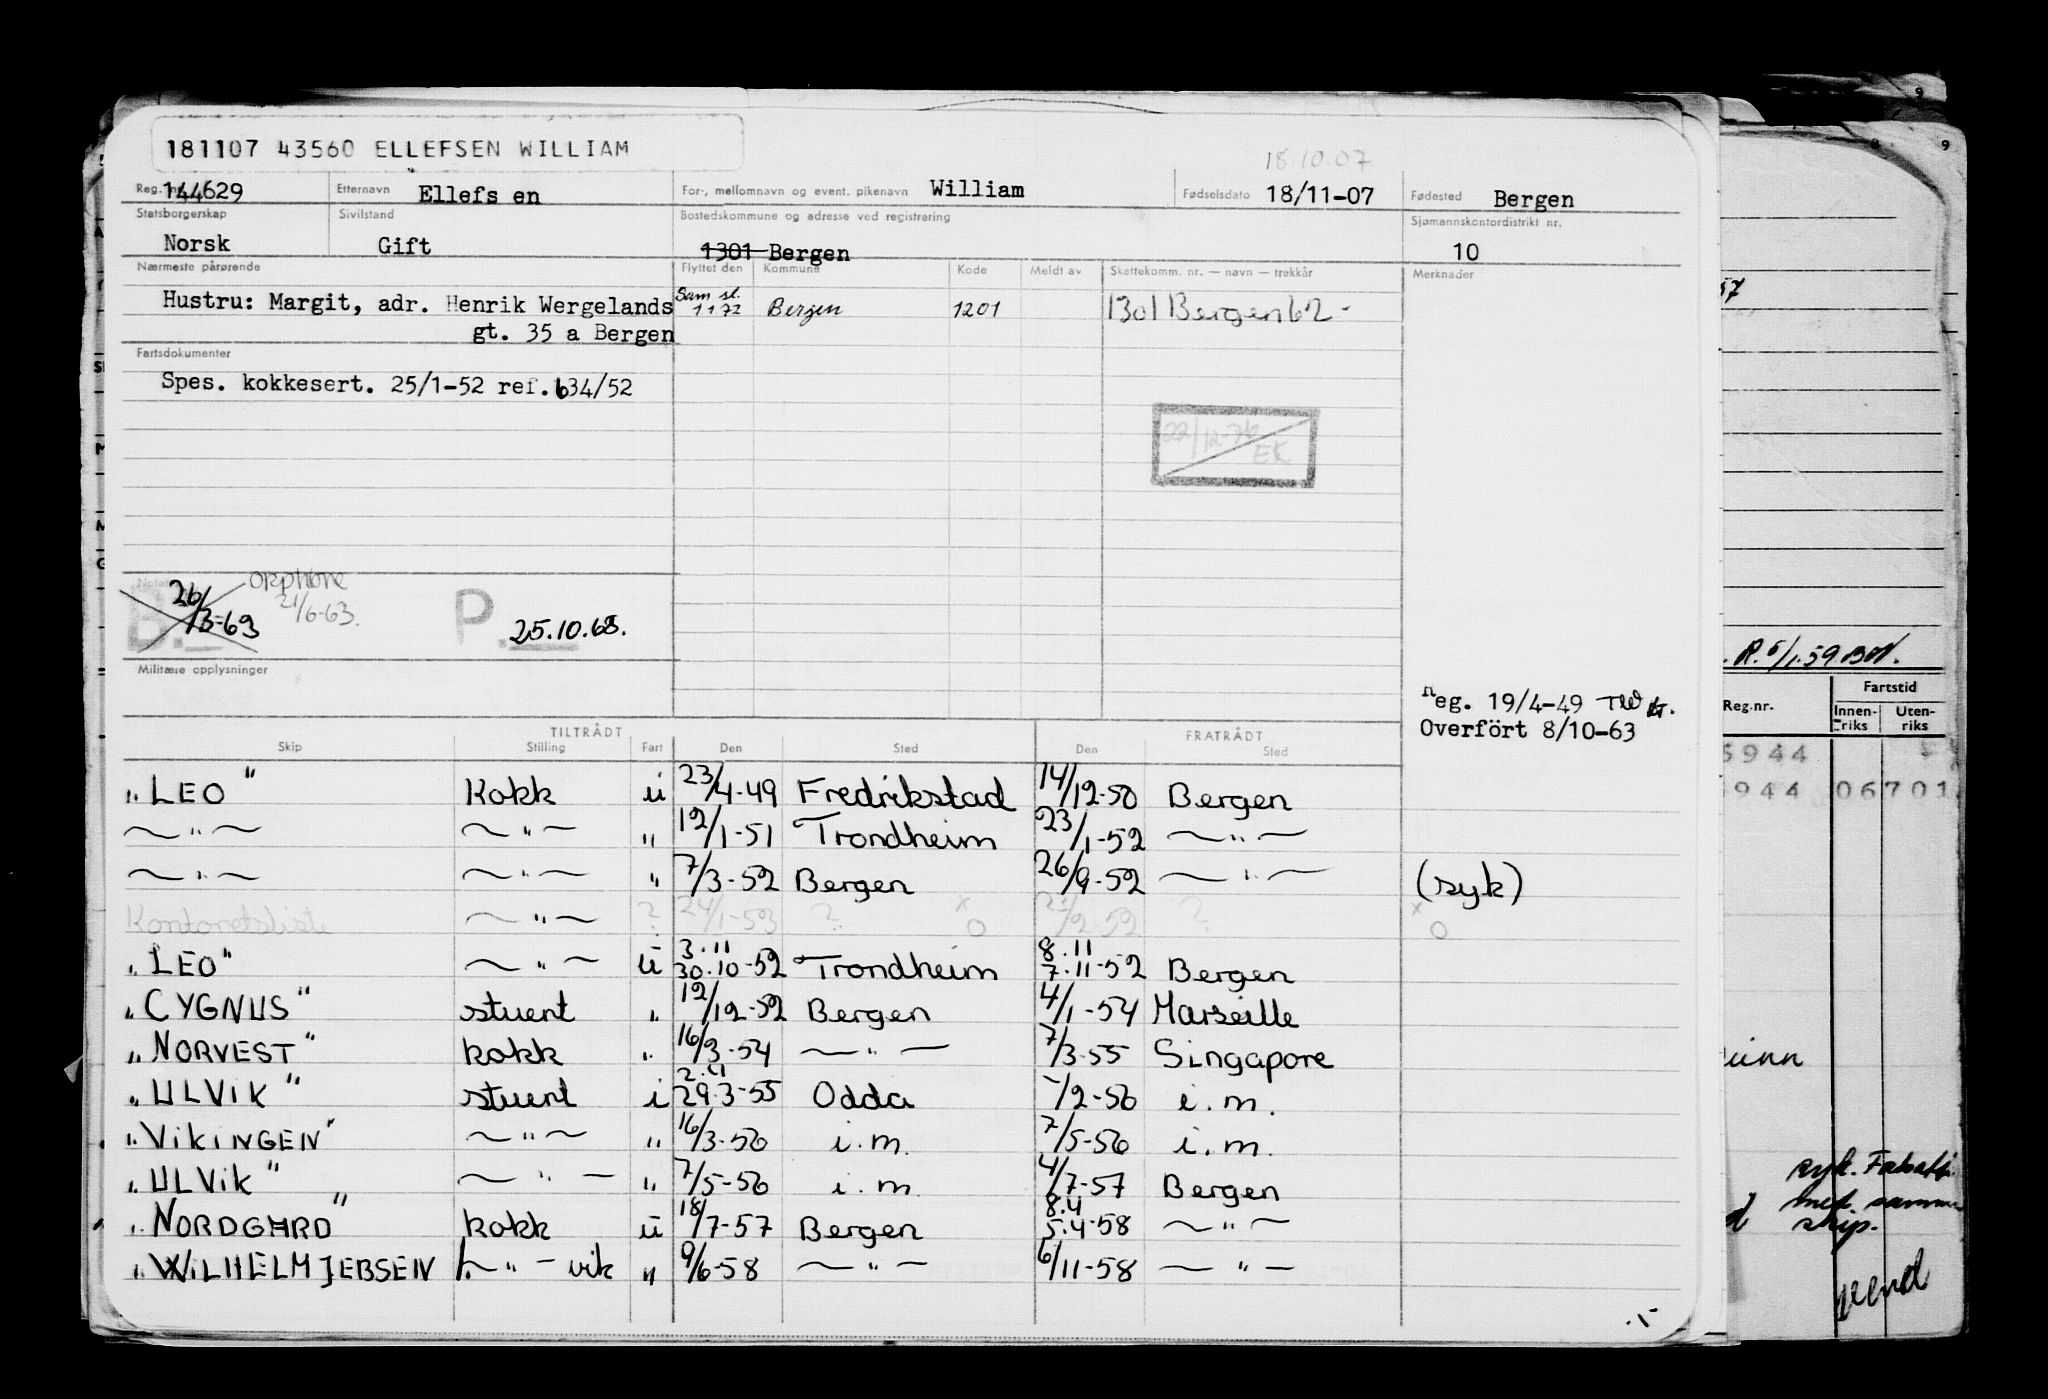 181107 43560 ELLEFSEN WILLIAM
18.10.07
Reg. nr. 144629 Etternavn Ellefsen For-, mellomnavn og event. pikenavn William Fødselsdato 18/11-07 Fødested Bergen
Statsborgerskap Sivilstand Bostedskommune og adresse ved registrering Sjømannskontordistrikt nr.
Norsk Gift 1301 Bergen 10
Nærmeste pårørende Flyttet den Kommune Kode Meldt av Skattekomm. nr. — navn — trekkår Merknader
Hustru: Margit, adr. Henrik Wergelands Sam sl. 1 1 72 Bergen 1201 1301 Bergen 62-
gt. 35 a Bergen
Fartsdokumenter
Spes. kokkesert. 25/1-52 ref. 634/52
22/12-76 EK
B. 26/3-63 21/6-63. P. 25.10.68.
Militære opplysninger
Reg. 19/4-49
Overfört 8/10-63
TILTRÅDT FRATRÅDT
Skip Stilling Fart Den Sted Den Sted
"LEO" Kokk u 23/4-49 Fredrikstad 14/12-50 Bergen
—"— —"— " 12/1-51 Trondheim 23/1-52 —"—
—"— —"— " 7/3-52 Bergen 26/9-52 —"— (syk)
Kontoretsliste —"— ? 24/1-53 ? x o 21/2-52 ? x o
3.11 8.11
"LEO" —"— u 30.10-52 Trondheim 7.11-52 Bergen
"CYGNUS" stuert " 12/12-52 Bergen 4/1-54 Marseille
"NORVEST" kokk " 16/3-54 —"— 7/3-55 Singapore
2.4
"ULVIK" stuert i 29.3-55 Odda -/2-56 i.m.
"VIKINGEN" —"— " 16/3-56 i.m. 7/5-56 i.m.
"ULVIK" —"— " 7/5-56 i.m. 4/7-57 Bergen
8.4
"NORDGARD" kokk u 18/7-57 Bergen 5.4-58 —"—
"WILHELM JEBSEN —"— vik " 9/6-58 —"— 6/11-58 —"—
9
8 9
57
R. 5/1.59
Reg.nr. Fartstid
Innen-riks Uten-riks
5944
944 06701
syk.
med. samme
skip.